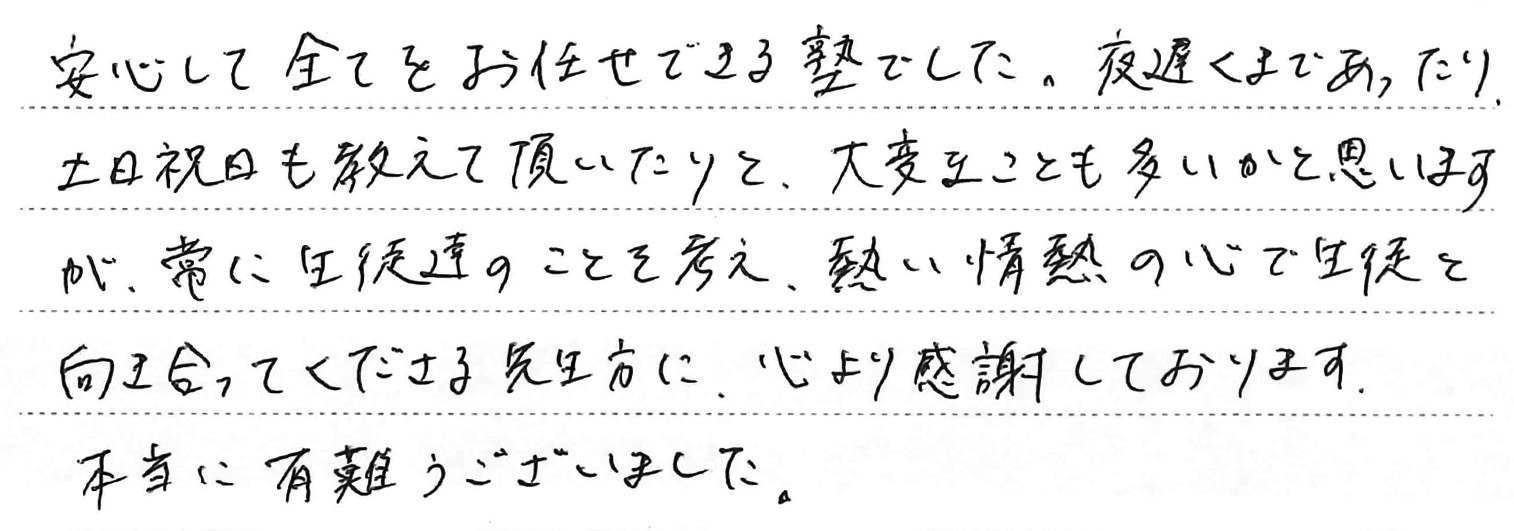 安心して全てをお任せできる塾でした。夜遅くまであったり、
土日祝日も教えて頂いたりと、大変なことも多いかと思います
が、常に生徒達のことを考え、熱い情熱の心で生徒と
向き合ってくださる先生方に、心より感謝しております。
本当に有難うございました。